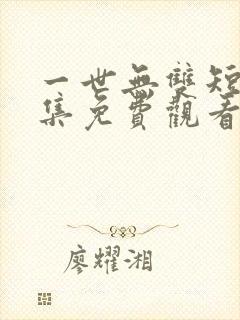 一世無雙短
集免費觀看
廖耀湘